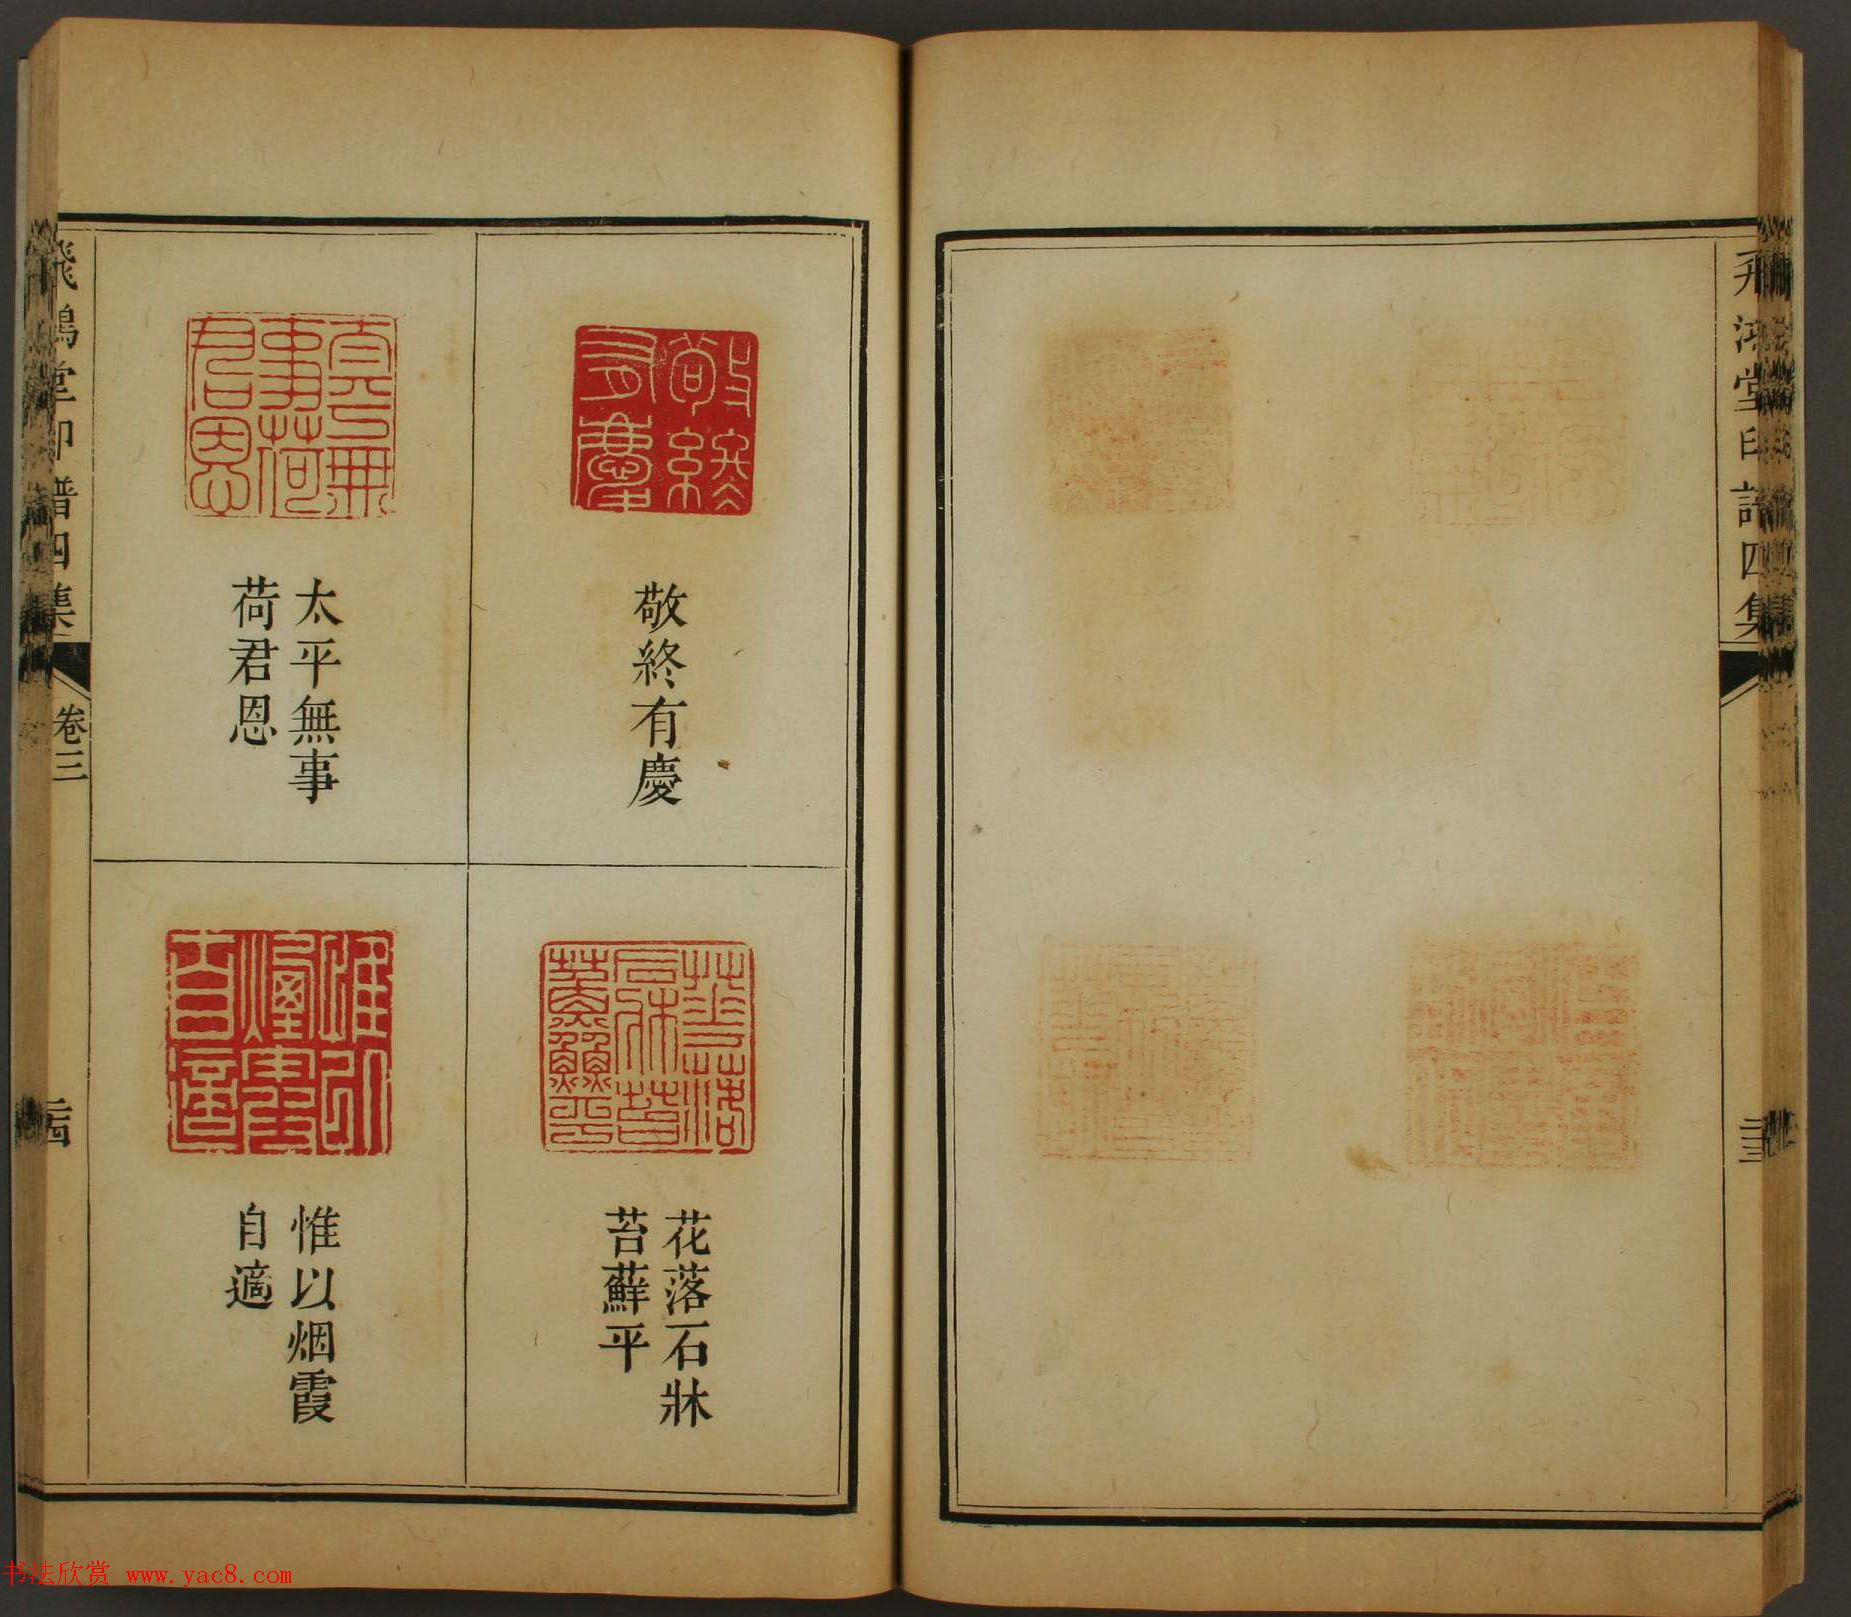 飛鴻堂印譜四集
卷三
三
敬終有慶
太平無事
荷君恩
花落石牀
苔蘚平
惟以烟霞
自適
飛鴻堂印譜四集
卷三
書法欣赏 www.yac8.com